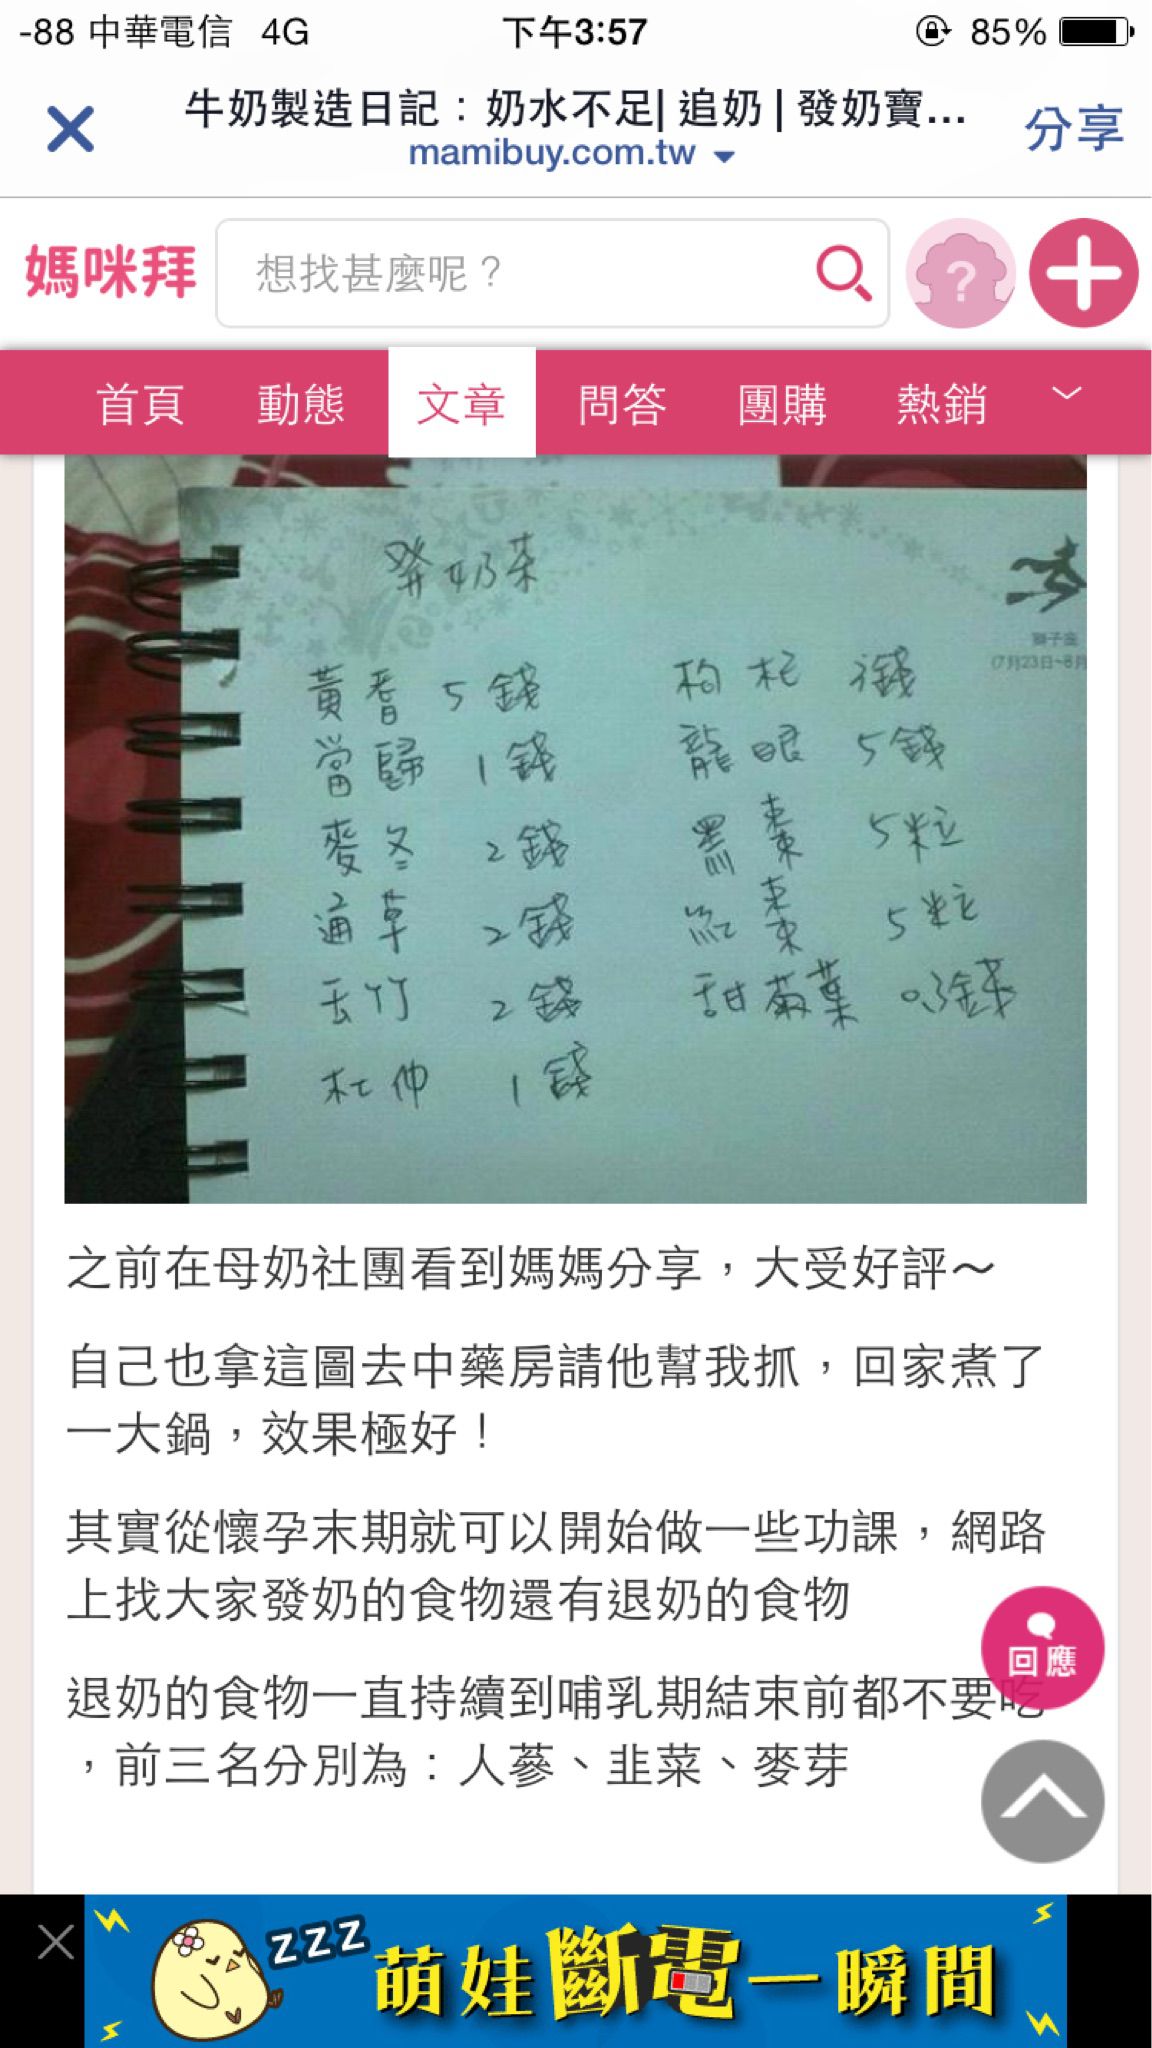 -88 中華電信 4G 下午3:57 85%
牛奶製造日記：奶水不足| 追奶 | 發奶寶...
分享
mamibuy.com.tw
媽咪拜
想找甚麼呢？
?
首頁 動態 文章 問答 團購 熱銷
發奶茶
獅子座
(7月23日~8月
黃耆 5錢 枸杞 3錢
當歸 1錢 龍眼 5錢
麥冬 2錢 黑棗 5粒
通草 2錢 紅棗 5粒
玉竹 2錢 甜菊葉 0.3錢
杜仲 1錢
之前在母奶社團看到媽媽分享，大受好評～
自己也拿這圖去中藥房請他幫我抓，回家煮了
一大鍋，效果極好！
其實從懷孕末期就可以開始做一些功課，網路
上找大家發奶的食物還有退奶的食物
回應
退奶的食物一直持續到哺乳期結束前都不要吃
，前三名分別為：人蔘、韭菜、麥芽
zzz
萌娃斷電一瞬間